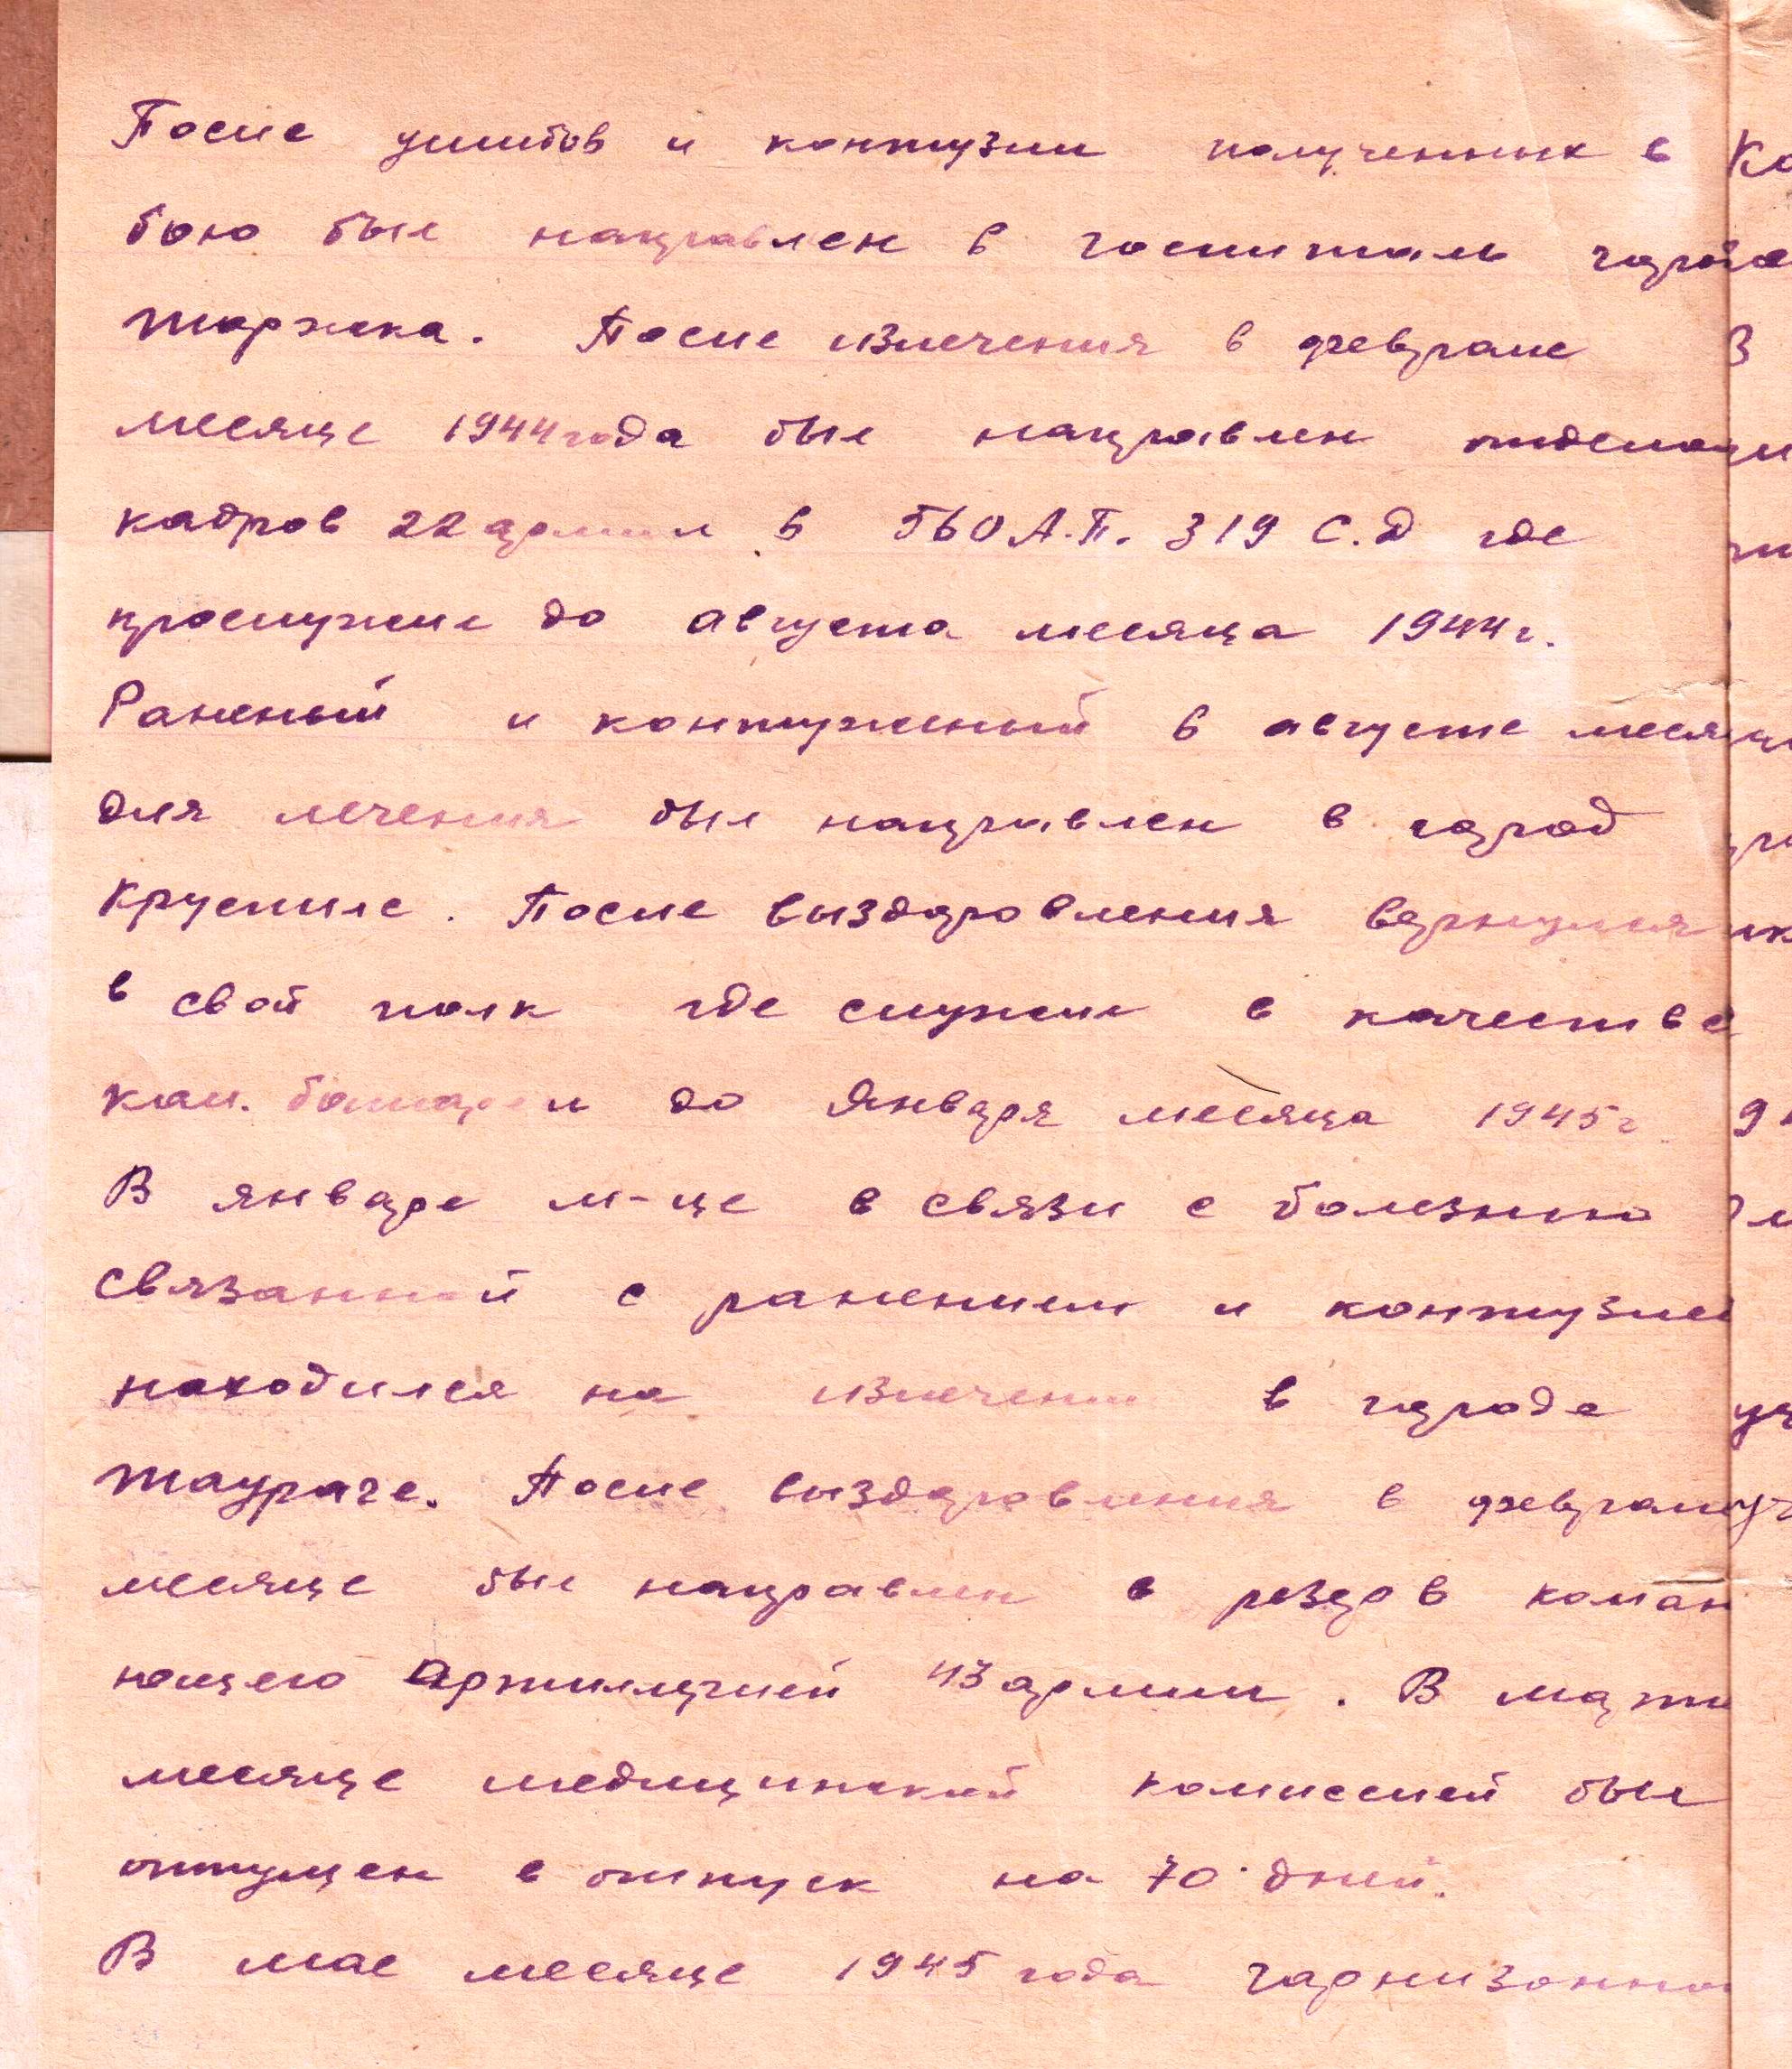 После ушибов и контузии полученных в
бою был направлен в госпиталь города
Торжка. После излечения в феврале
месяце 1944 года был направлен отделом
кадров 22 армии в 560 А.П. 319 С.Д где
прослужил до августа месяца 1944 г.
Раненый и контуженый в августе меся
для лечения был направлен в город
Круспиле. После выздоровления вернулся
в свой полк где служил в качестве
ком. батареи до января месяца 1945 г
В январе м-це в связи с болезнию
связанной с ранением и контузией
находился на излечении в городе
Таураге. После выздоровления в феврале
месяце был направлен в резерв коман
ющего артиллерией 43 армии. В марте
месяце медицинской комиссией был
отпущен в отпуск на 70 дней.
В мае месяце 1945 года гарнизонно